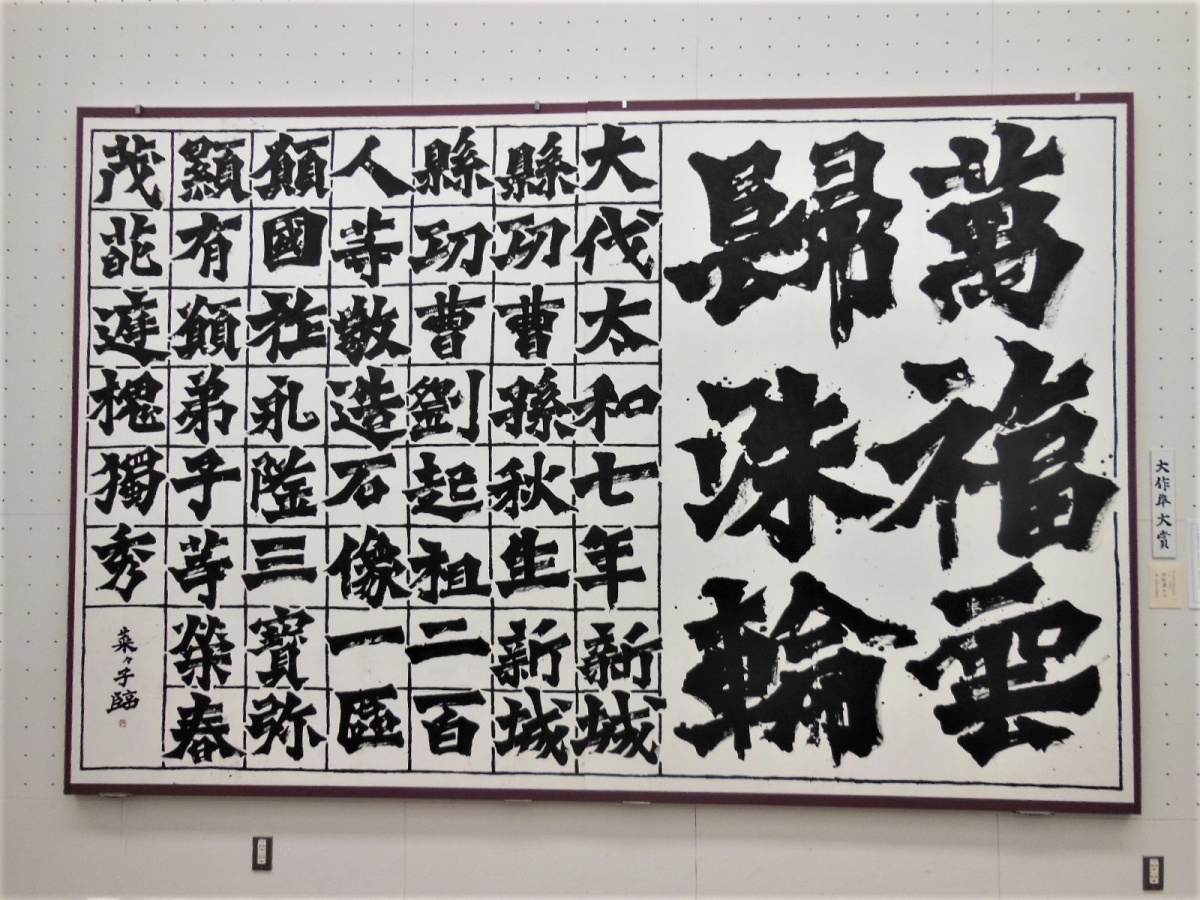 萬福雲
歸珠輪
大伐太和七年新城
縣功曹孫秋生新城
縣功曹劉起祖二百
人等敬造石像一區
願國祚永隆三寶弥
顯有願弟子等榮春
茂葩庭槐獨秀
菜々子臨
大作準大賞